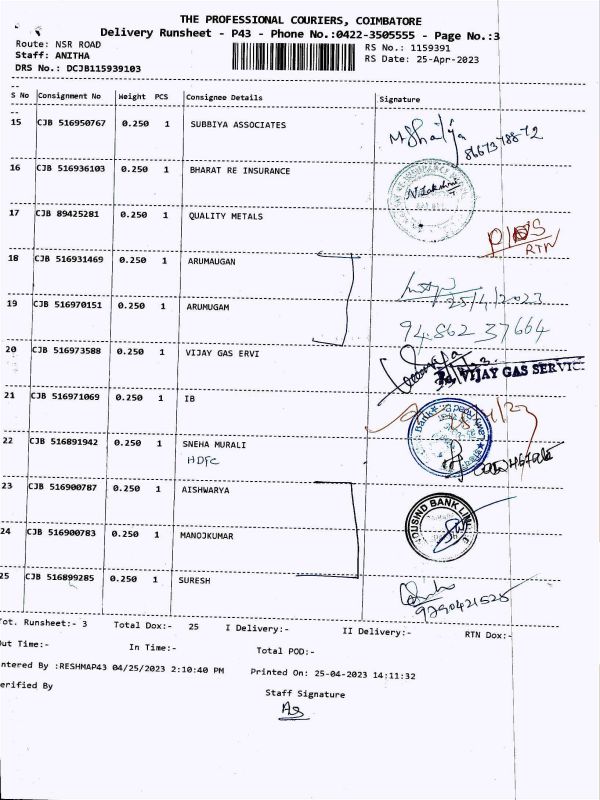 THE PROFESSIONAL COURIERS, COIMBATORE
Delivery Runsheet - P43 - Phone No.:0422-3505555 - Page No.:3
Route: NSR ROAD
RS No.: 1159391
Staff: ANITHA
RS Date: 25-Apr-2023
DRS No.: DCJB115939103
S No Consignment No Weight PCS Consignee Details Signature
15 CJB 516950767 0.250 1 SUBBIYA ASSOCIATES
16 CJB 516936103 0.250 1 BHARAT RE INSURANCE
N. Lakshmi
17 CJB 89425281 0.250 1 QUALITY METALS
RTN
18 CJB 516931469 0.250 1 ARUMAUGAN
25/4/2023
19 CJB 516970151 0.250 1 ARUMUGAM
94862 37664
20 CJB 516973588 0.250 1 VIJAY GAS ERVI
VIJAY GAS SERVIC
21 CJB 516971069 0.250 1 IB
22 CJB 516891942 0.250 1 SNEHA MURALI
HDFC
23 CJB 516900787 0.250 1 AISHWARYA
OUSIND BANK LIM
24 CJB 516900783 0.250 1 MANOJKUMAR
25 CJB 516899285 0.250 1 SURESH
Tot. Runsheet:- 3 Total Dox:- 25 I Delivery:- II Delivery:- RTN Dox:-
Out Time:- In Time:- Total POD:-
ntered By :RESHMAP43 04/25/2023 2:10:40 PM Printed On: 25-04-2023 14:11:32
erified By
Staff Signature